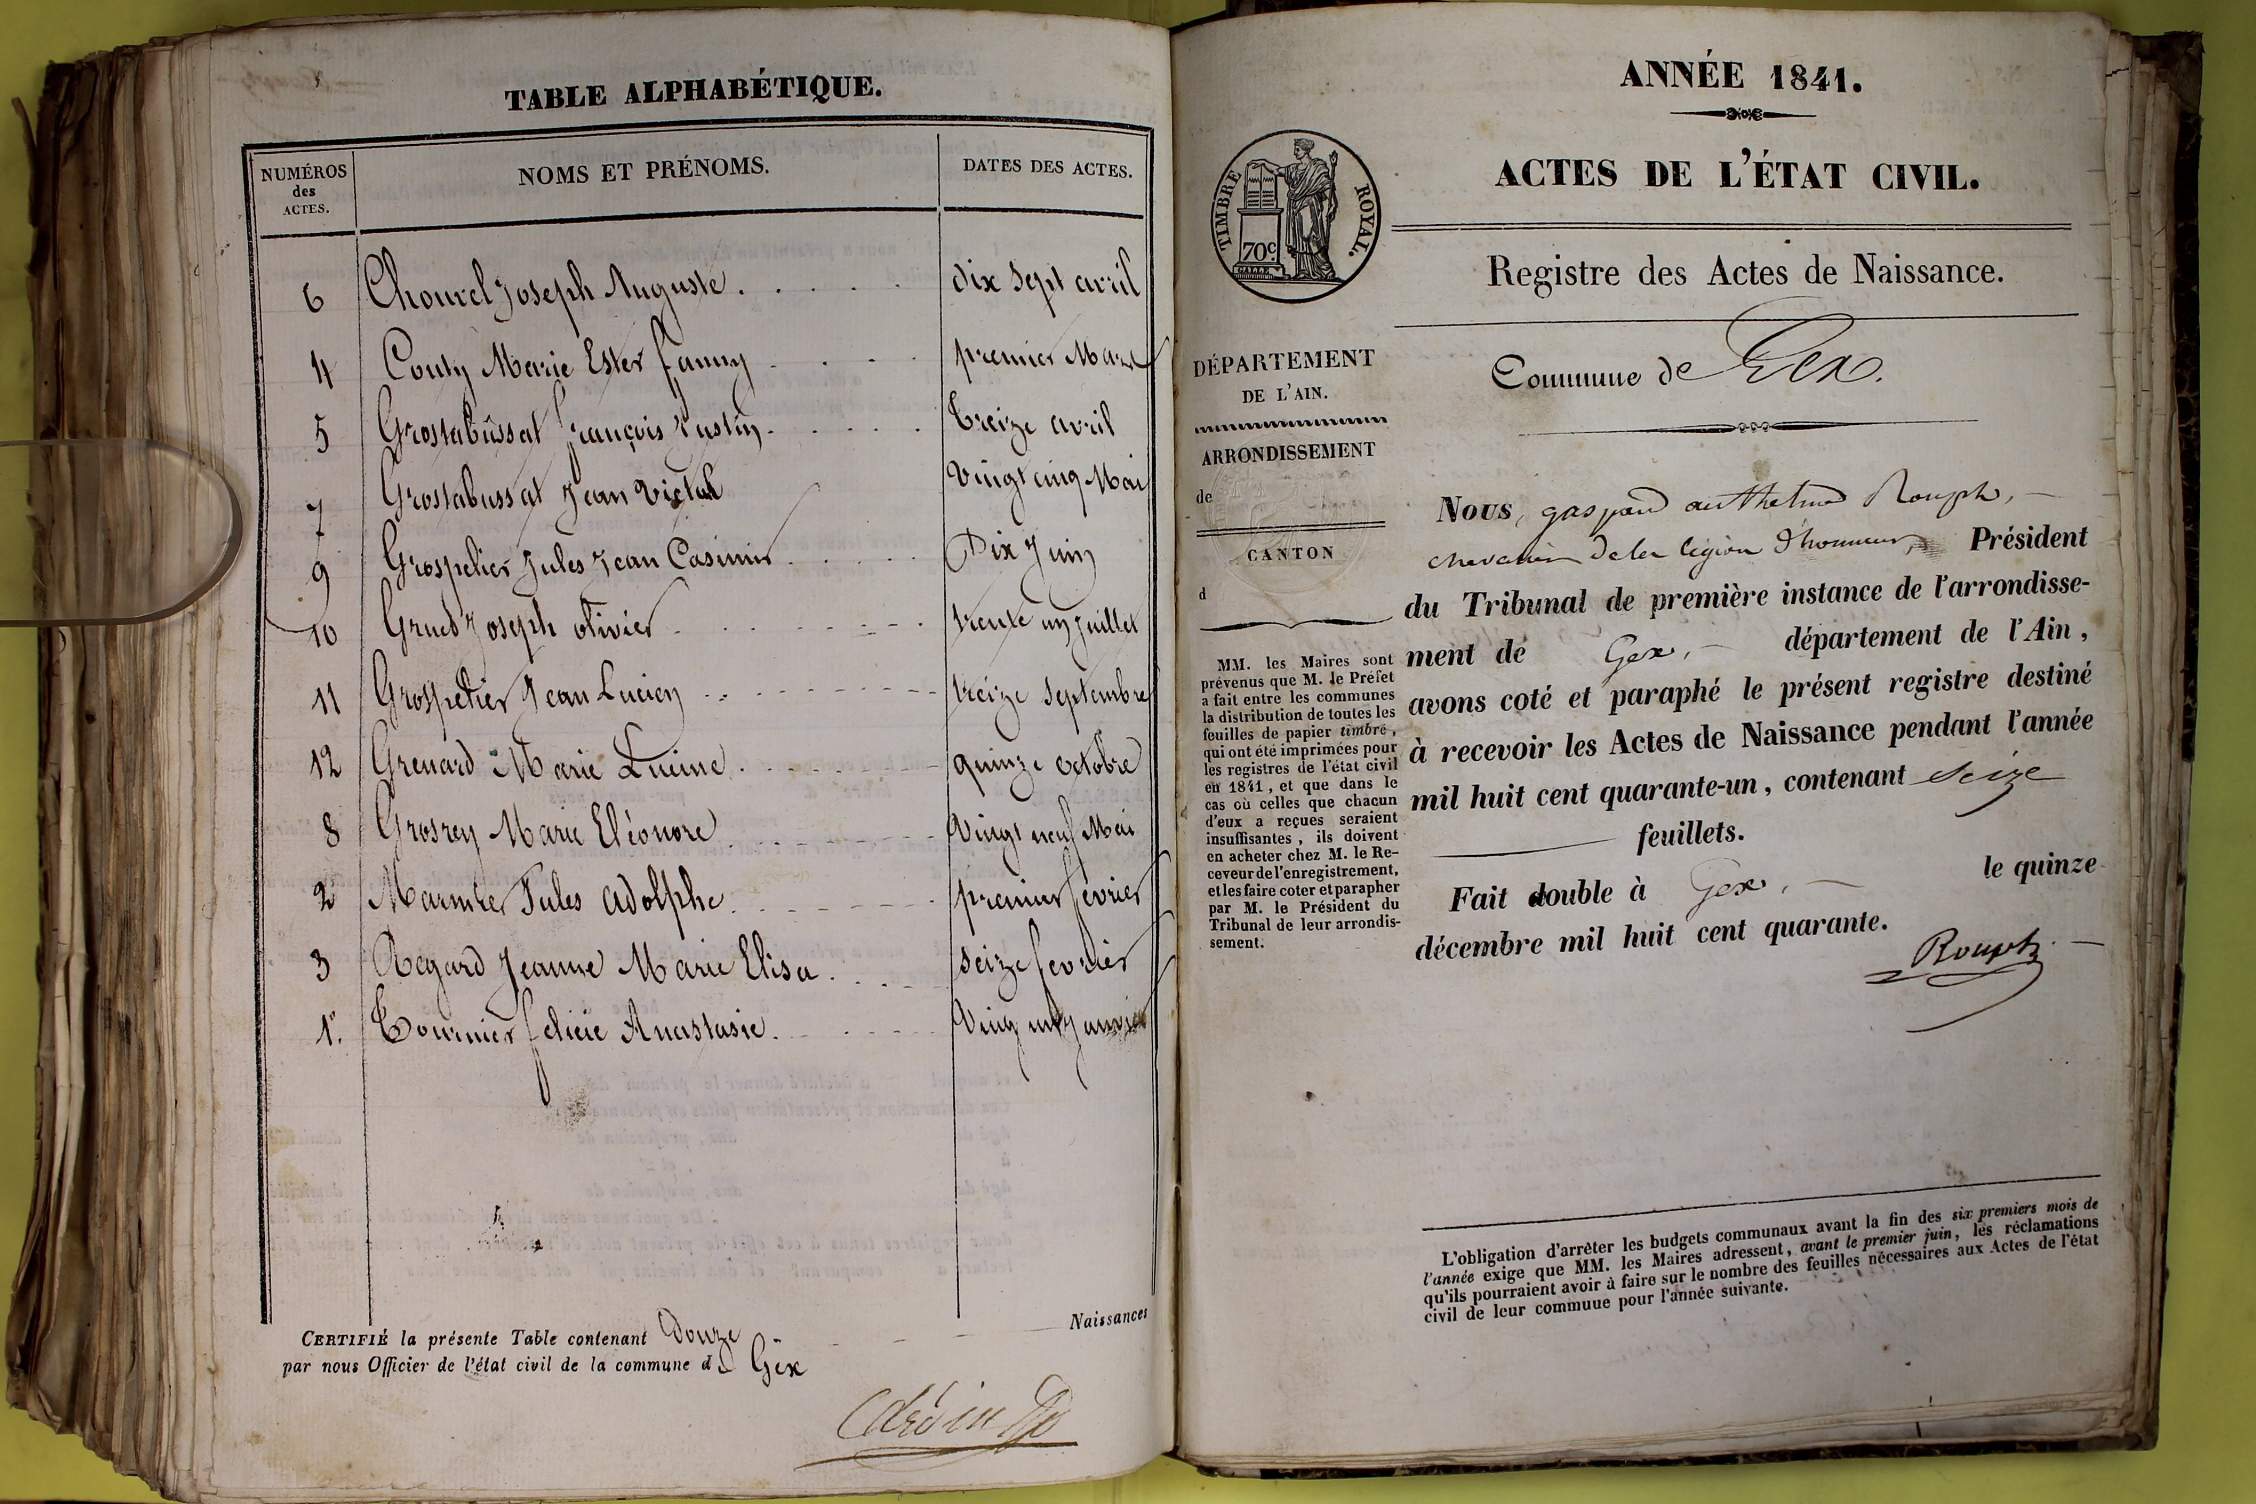 TABLE ALPHABÉTIQUE.
NUMÉROS des ACTES. NOMS ET PRÉNOMS. DATES DES ACTES.
6 Chouvel Joseph Auguste. dix sept avril
4 Couty Marie Ester fanny premier Mars
5 Grostabussat françois Justin. treize avril
7 Grostabussat Jean Victal Vingt cinq Mai
9 Grospelier Jules Jean Casimir Dix Juin
10 Joseph olivier trente un Juillet
11 Grospelier Jean Lucien treize septembre
12 Grenard Marie Lucine. quinze octobre
8 Grosrey Marie Eléonore Vingt neuf Mai
2 Jules adolphe. premier fevrier
3 Regard Jeanne Marie Elisa. seize fevrier
1. Tournier felicie Anastasie. Janvier
Naissances
CERTIFIÉ la présente Table contenant Douze
par nous Officier de l'état civil de la commune de Gex
ANNÉE 1841.
ACTES DE L'ÉTAT CIVIL.
Registre des Actes de Naissance.
Commune de Gex.
TIMBRE ROYAL.
70c
DÉPARTEMENT
DE L'AIN.
ARRONDISSEMENT
de
CANTON
d
MM. les Maires sont
prévenus que M. le Préfet
a fait entre les communes
la distribution de toutes les
feuilles de papier timbré,
qui ont été imprimées pour
les registres de l'état civil
en 1841, et que dans le
cas où celles que chacun
d'eux a reçues seraient
insuffisantes, ils doivent
en acheter chez M. le Re-
ceveur de l'enregistrement,
et les faire coter et parapher
par M. le Président du
Tribunal de leur arrondis-
sement.
Nous, gaspard anthelme Rouph,
chevalier de la légion d'honneur, Président
du Tribunal de première instance de l'arrondisse-
ment de Gex, département de l'Ain,
avons coté et paraphé le présent registre destiné
à recevoir les Actes de Naissance pendant l'année
mil huit cent quarante-un, contenant seize
feuillets.
Fait double à Gex, le quinze
décembre mil huit cent quarante.
Rouph
L'obligation d'arrêter les budgets communaux avant la fin des six premiers mois de
l'année exige que MM. les Maires adressent, avant le premier juin, les réclamations
qu'ils pourraient avoir à faire sur le nombre des feuilles nécessaires aux Actes de l'état
civil de leur commune pour l'année suivante.